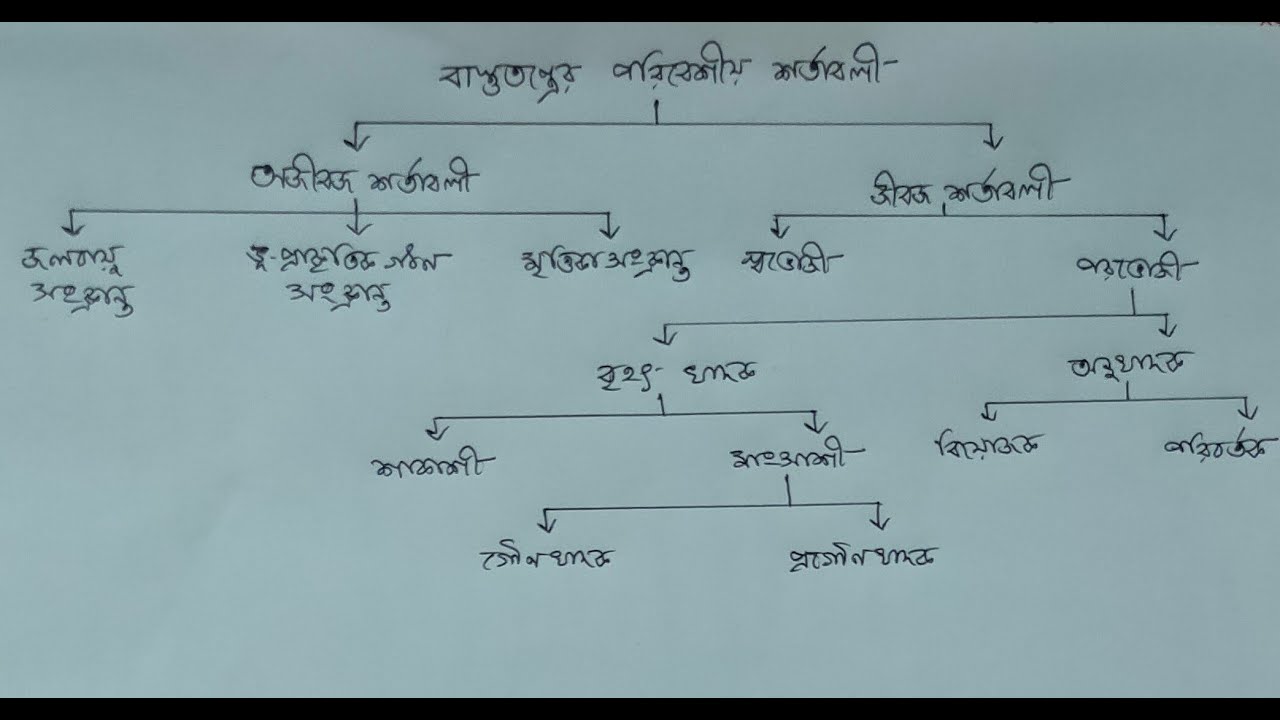 বাস্তুতন্ত্রের পরিবেশীয় শর্তাবলী
অজীবজ শর্তাবলী
জীবজ শর্তাবলী
জলবায়ু
সংক্রান্ত
ভূ-প্রাকৃতিক গঠন
সংক্রান্ত
মৃত্তিকা সংক্রান্ত
স্বভোজী
পরভোজী
বৃহৎ- খাদক
অনুখাদক
শাকাশী
মাংসাশী
বিয়োজক
পরিবর্তক
গৌনখাদক
প্রগৌনখাদক